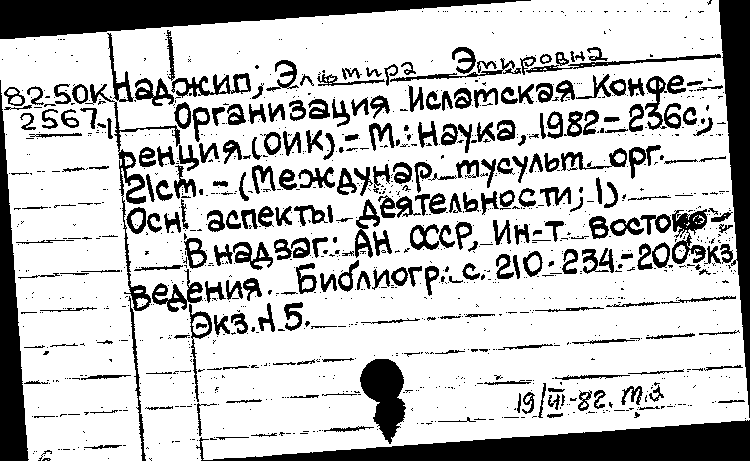 82-50К Наджип, Эльмира Эмировна
2567-1 Организация Исламская Конфе-
ренция (ОИК).- М.: Наука, 1982.- 236с.;
21см. - (Междунар. мусульм. орг.
Осн. аспекты деятельности; 1).
В надзаг.: АН СССР, Ин-т Востоко-
ведения. Библиогр.: с. 210-234.-200экз
Экз. N 5.
19/VII-82.